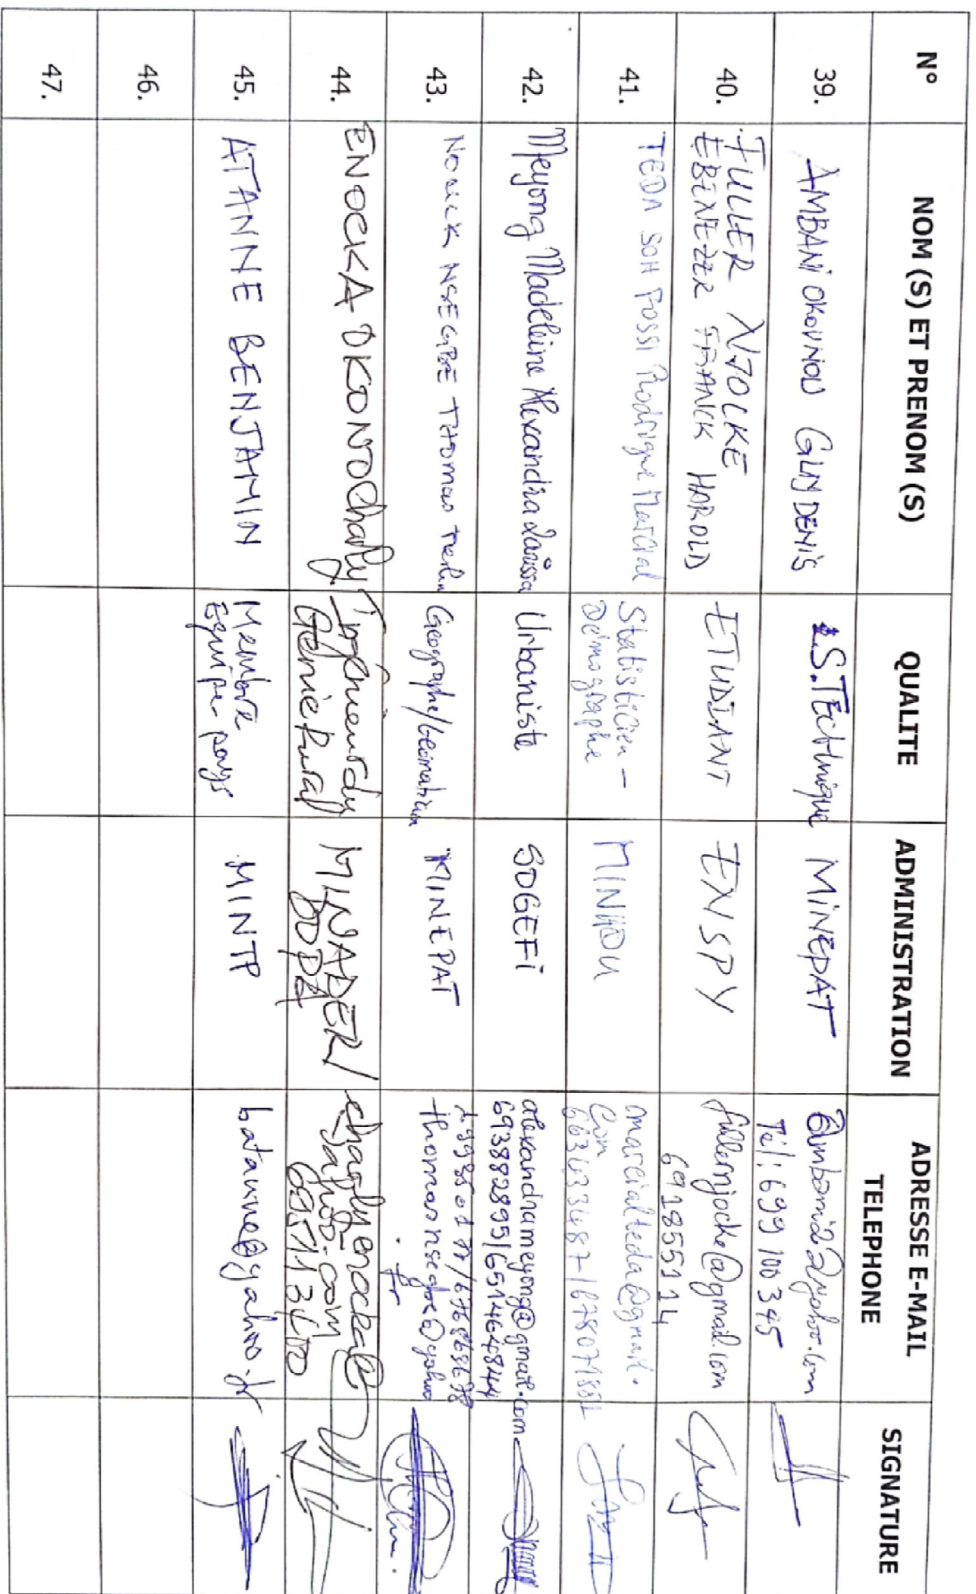 N° NOM (S) ET PRENOM (S) QUALITE ADMINISTRATION ADRESSE E-MAIL TELEPHONE SIGNATURE
39. AMBANI OKOUNOU GUY DENIS S.TECHnique MINEPAT
Tél: 699 100 345
40. FULLER NJOCKE
EBENEZER FRANCK HAROLD ETUDIANT ENSPY fullernjocke@gmail.com
691855114
41. TEDA SOH POSSI Rodrigue Marcial Statisticien -
Démographe MINHDU marcialteda@gmail.
com
42. Meyong Madeleine Alexandra Larissa Urbaniste SOGEFI alexandrameyong@gmail.com
693882895/651464844
43. THOMAS Géographe/Géomaticien MINEPAT
thomasnsegbe@yahoo
.fr
44. ENOCKA OKONO Charly Ingénieur du
Génie Rural MINADER/
yahoo.com
45. ATANNE BENJAMIN Membre
Equipe pays MINTP batanne@yahoo.fr
46.
47.